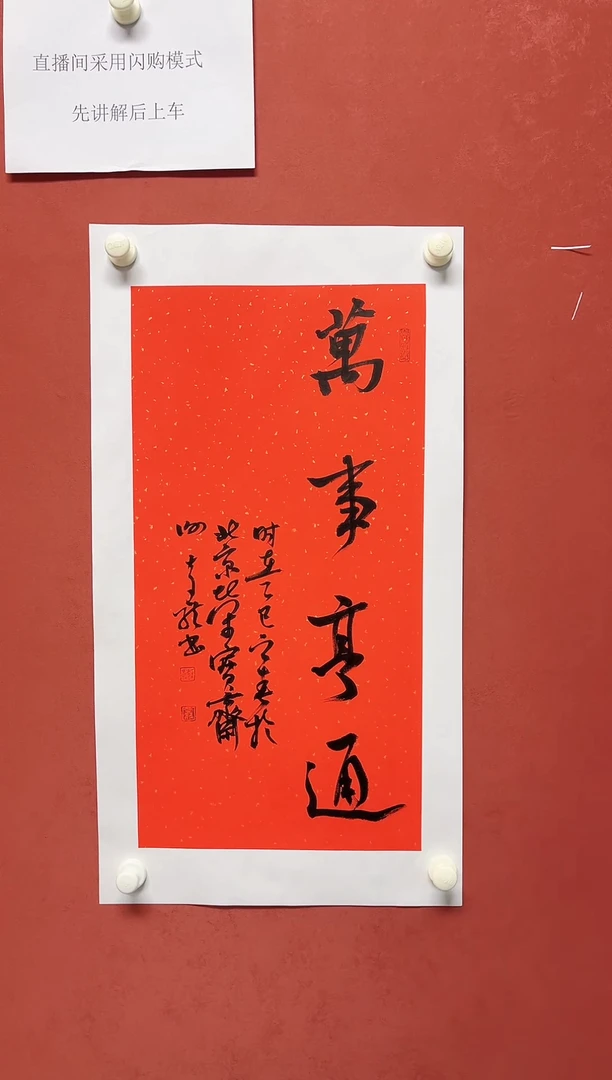 直播间采用闪购模式
先讲解后上车
萬事亨通
时在乙巳之春於
北京
寶齋
书